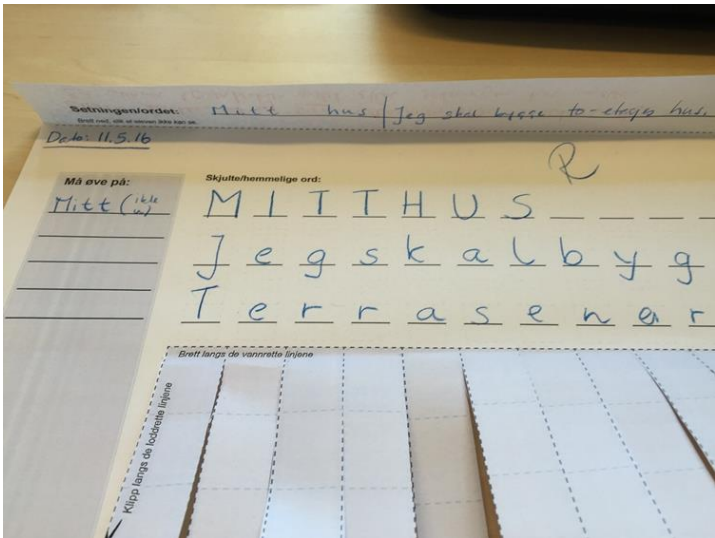 Setningen/ordet: Mitt hus / Jeg skal bygge to-etasjes hus.
Brett ned, slik at eleven ikke kan se.
Dato: 11.5.16
R
Må øve på:
Mitt (ikke
Skjulte/hemmelige ord:
M I T T H U S
J e g s k a l b y g
T e r r a s e n e r
Brett langs de vannrette linjene
Klipp langs de loddrette linjene